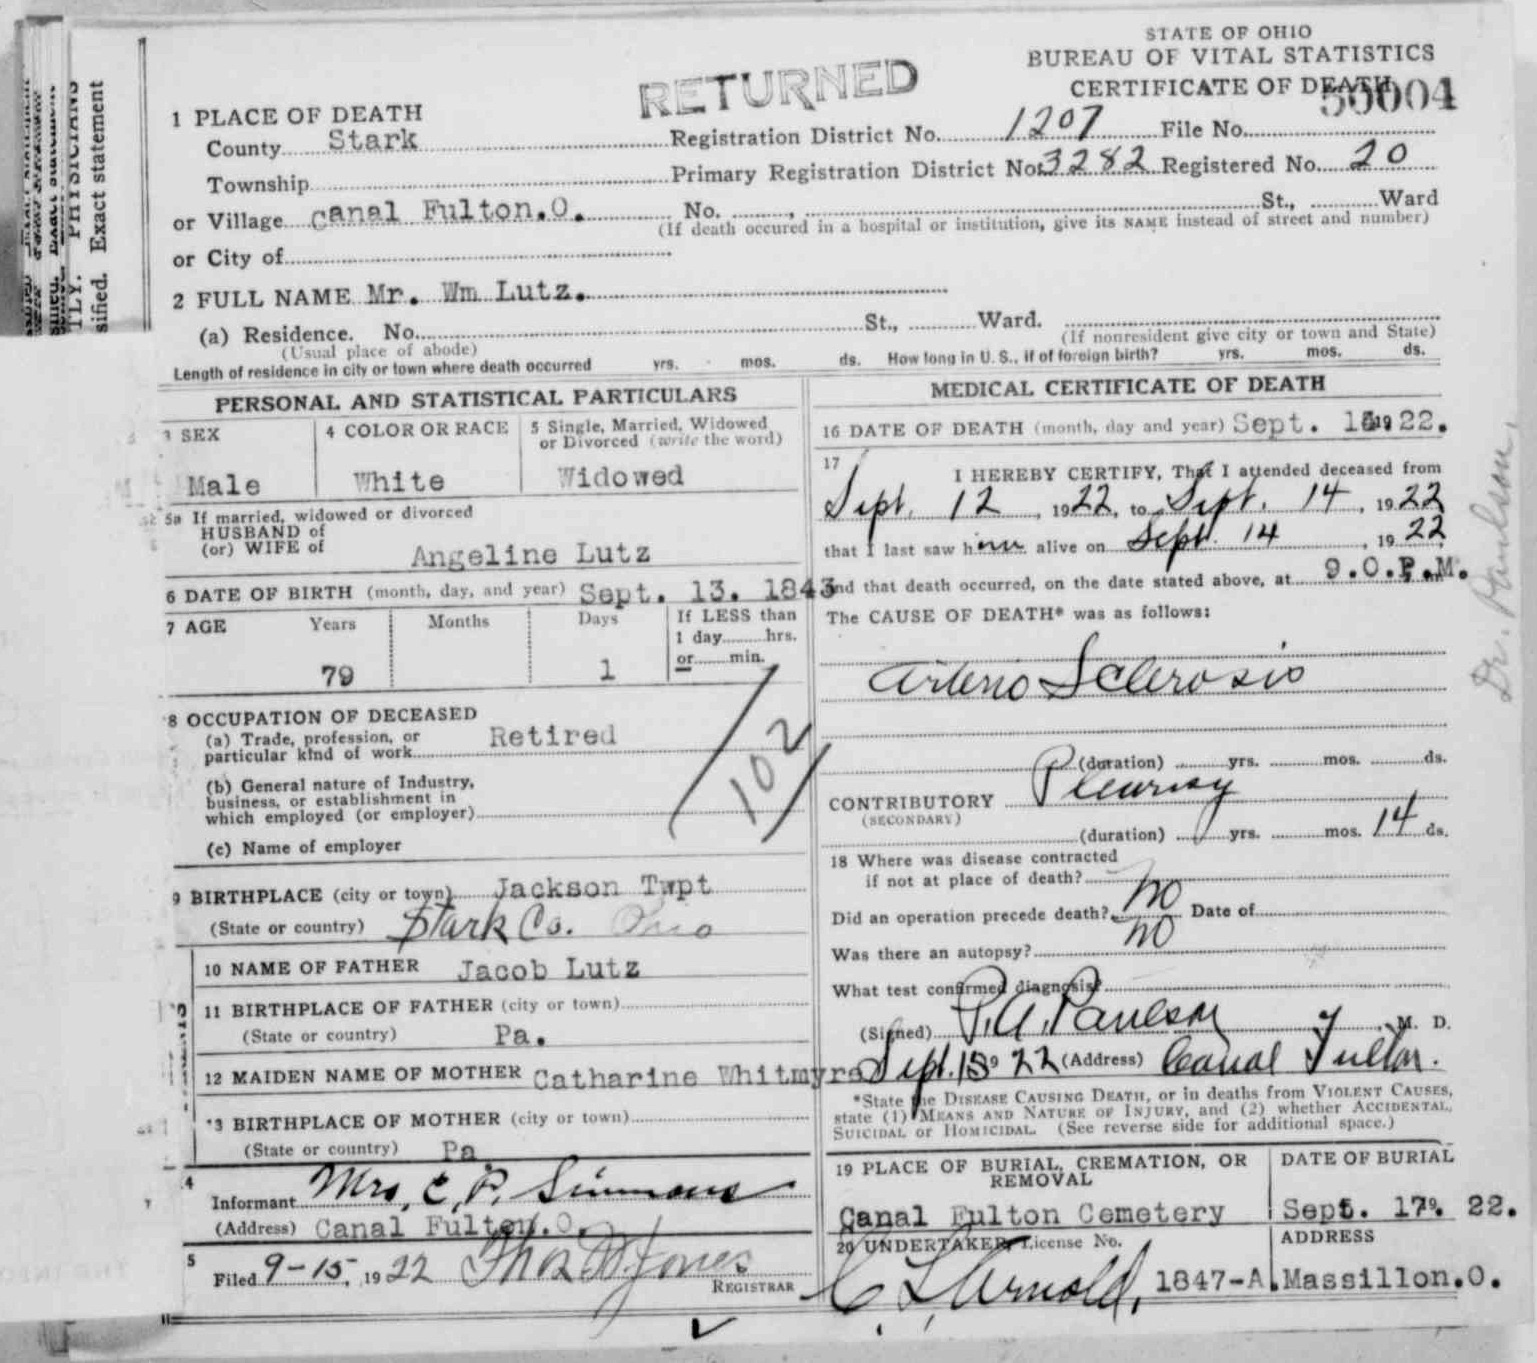 STATE OF OHIO
BUREAU OF VITAL STATISTICS
CERTIFICATE OF DEATH
RETURNED
50004
PHYSICIANS
Exact statement
1 PLACE OF DEATH
County Stark Registration District No. 1207 File No.
Township Primary Registration District No. 3282 Registered No. 20
or Village Canal Fulton.O. No. , St., Ward
(If death occured in a hospital or institution, give its NAME instead of street and number)
or City of
2 FULL NAME Mr. Wm Lutz.
(a) Residence. No. St., Ward.
(Usual place of abode) (If nonresident give city or town and State)
Length of residence in city or town where death occurred yrs. mos. ds. How long in U. S., if of foreign birth? yrs. mos. ds.
PERSONAL AND STATISTICAL PARTICULARS
3 SEX 4 COLOR OR RACE 5 Single, Married, Widowed
or Divorced (write the word)
Male White Widowed
5a If married, widowed or divorced
HUSBAND of
(or) WIFE of Angeline Lutz
6 DATE OF BIRTH (month, day, and year) Sept. 13. 1843
7 AGE Years Months Days If LESS than
1 day hrs.
or min.
79 1
8 OCCUPATION OF DECEASED
(a) Trade, profession, or
particular kind of work Retired
102
(b) General nature of Industry,
business, or establishment in
which employed (or employer)
(c) Name of employer
9 BIRTHPLACE (city or town) Jackson Twpt
(State or country) Stark Co. Ohio
10 NAME OF FATHER Jacob Lutz
11 BIRTHPLACE OF FATHER (city or town)
(State or country) Pa.
12 MAIDEN NAME OF MOTHER Catharine Whitmyre
13 BIRTHPLACE OF MOTHER (city or town)
(State or country) Pa
14
Informant Mrs, C, P. Simmons
(Address) Canal Fulton.O.
15
Filed 9-15, 1922 Thos W Jones
REGISTRAR
MEDICAL CERTIFICATE OF DEATH
16 DATE OF DEATH (month, day and year) Sept. 1922.
17 I HEREBY CERTIFY, That I attended deceased from
Sept. 12, 1922, to Sept. 14, 1922
that I last saw him alive on Sept. 14, 1922
and that death occurred, on the date stated above, at 9.0.P.M.
The CAUSE OF DEATH* was as follows:
Arterio Sclerosis
(duration) yrs. mos. ds.
CONTRIBUTORY Pleurisy
(SECONDARY)
(duration) yrs. mos. 14 ds.
18 Where was disease contracted
if not at place of death?
Did an operation precede death? no Date of
Was there an autopsy? no
What test confirmed diagnosis?
(Signed) P.A. Paulson, M. D.
Sept. 15 1922 (Address) Canal Fulton.
*State the DISEASE CAUSING DEATH, or in deaths from VIOLENT CAUSES,
state (1) MEANS AND NATURE OF INJURY, and (2) whether ACCIDENTAL,
SUICIDAL or HOMICIDAL. (See reverse side for additional space.)
19 PLACE OF BURIAL, CREMATION, OR
REMOVAL
DATE OF BURIAL
Canal Fulton Cemetery Sept. 17. 22.
20 UNDERTAKER, License No. ADDRESS
C L Arnold, 1847-A. Massillon.O.
Dr. Paulson,